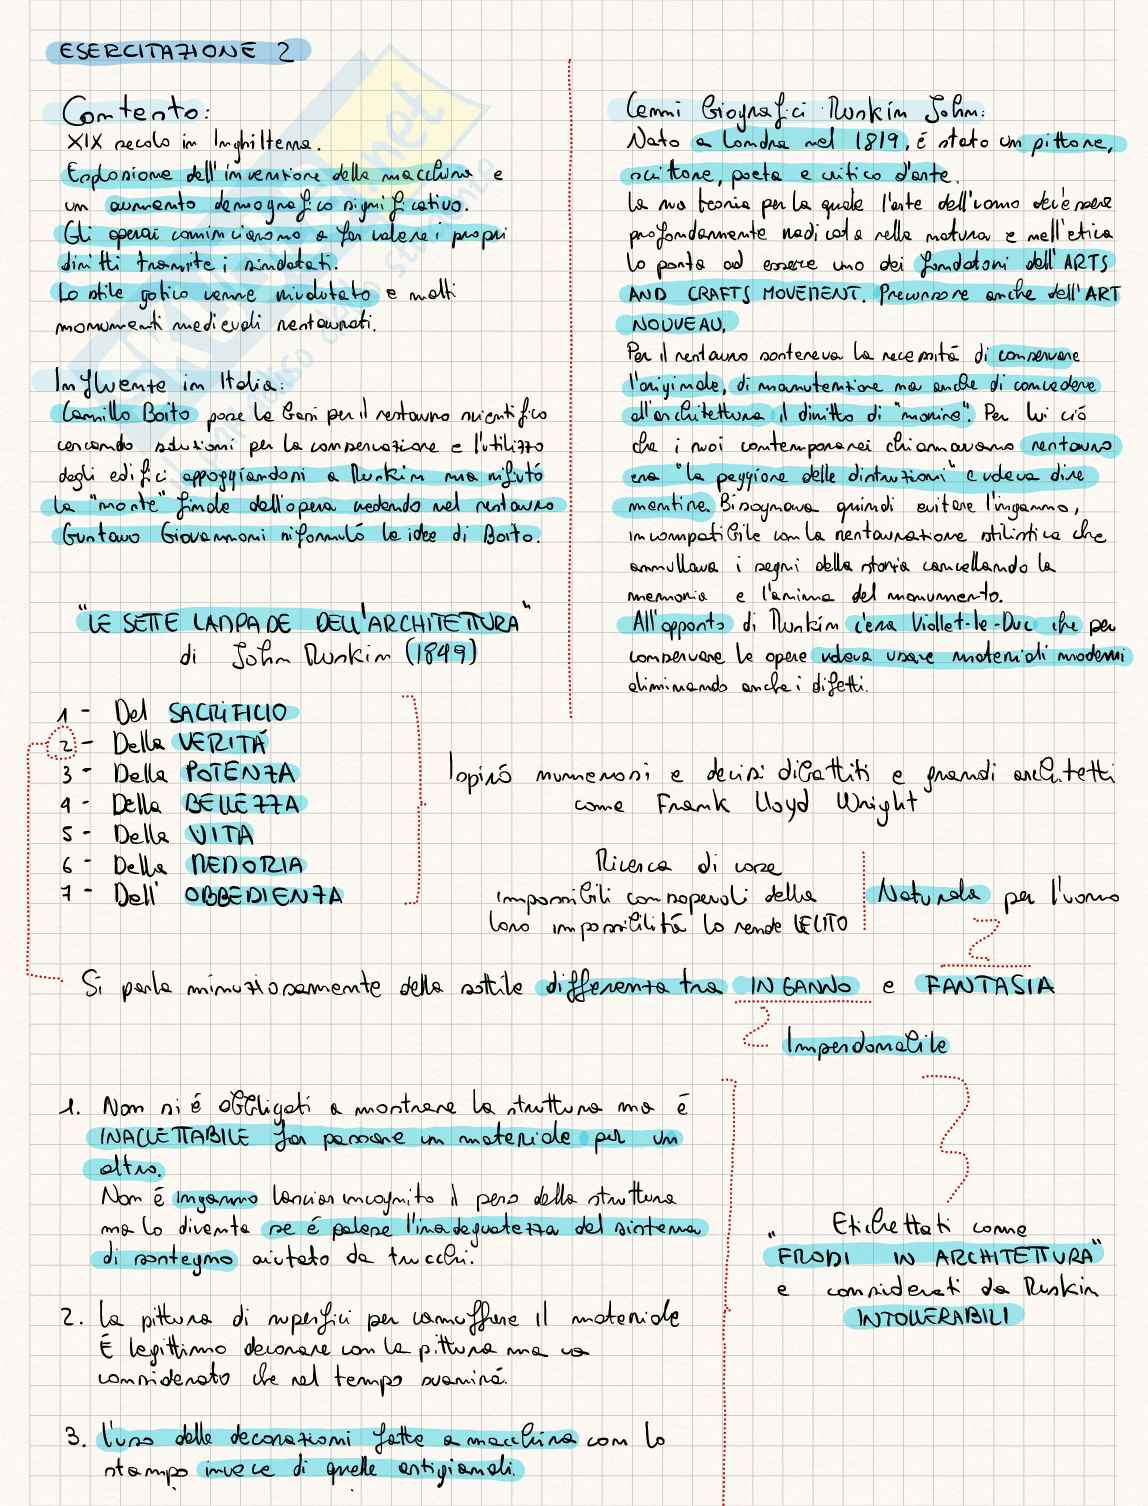 ESERCITAZIONE 2
Contesto:
XIX secolo in Inghilterra.
Esplosione dell'invenzione della macchina e
un aumento demografico significativo.
Gli operai cominciarono a far valere i propri
diritti tramite i sindacati.
Lo stile gotico venne rivalutato e molti
monumenti medievali restaurati.
Influente in Italia:
Camillo Boito pose le basi per il restauro scientifico
cercando soluzioni per la conservazione e l'utilizzo
degli edifici appoggiandosi a Ruskin ma rifiutò
la "morte" finale dell'opera vedendo nel restauro
Gustavo Giovannoni riformulò le idee di Boito.
Cenni Biografici Ruskin John:
Nato a Londra nel 1819, é stato un pittore,
scittore, poeta e critico d'arte.
La sua teoria per la quale l'arte dell'uomo dev'essere
profondarmente radicata nella natura e nell'etica
lo porta ad essere uno dei fondatori dell'ARTS
AND CRAFTS MOVEMENT. Precursore anche dell'ART
NOUVEAU.
Per il restauro sosteneva la necessitá di conservare
l'originale, di manutenzione ma anche di concedere
all'architettura il diritto di "morire". Per lui ció
che i suoi contemporanei chiamavano restauro
era "la peggiore delle distruzioni" e voleva dire
mentire. Bisognava quindi evitare l'inganno,
incompatibile con la restaurazione stilistica che
annullava i segni della storia cancellando la
memoria e l'anima del monumento.
All'opposto di Ruskin c'era Viollet-le-Duc che per
conservare le opere voleva usare materiali moderni
eliminando anche i difetti.
"LE SETTE LAMPADE DELL'ARCHITETTURA"
di John Ruskin (1849)
1 - Del SACRIFICIO
2 - Della VERITÁ
3 - Della POTENZA
4 - Della BELLEZZA
5 - Della VITA
6 - Della MEMORIA
7 - Dell' OBBEDIENZA
Ispiró numerosi e decisi dibattiti e grandi architetti
come Frank Lloyd Wright
Ricerca di cose
impossibili consapevoli della
loro impossibilitá lo rende LECITO
Naturale per l'uomo
Si parla minuziosamente della sottile differenza tra INGANNO e FANTASIA
Imperdonabile
1. Non si é obbligati a mostrare la struttura ma é
INACCETTABILE far passare un materiale per un
altro.
Non é inganno lasciar incognito il peso della struttura
ma lo diventa se é palese l'inadeguatezza del sistema
di sostegno aiutato da trucchi.
2. La pittura di superfici per camuffare il materiale
É legittimo decorare con la pittura ma va
considerato che nel tempo svanirá.
3. L'uso delle decorazioni fatte a macchina con lo
stampo invece di quelle artigianali.
Etichettati come
"FRODI IN ARCHITETTURA"
e considerati da Ruskin
INTOLLERABILI